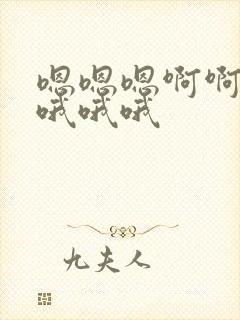 嗯嗯嗯啊啊
哦哦哦
九夫人